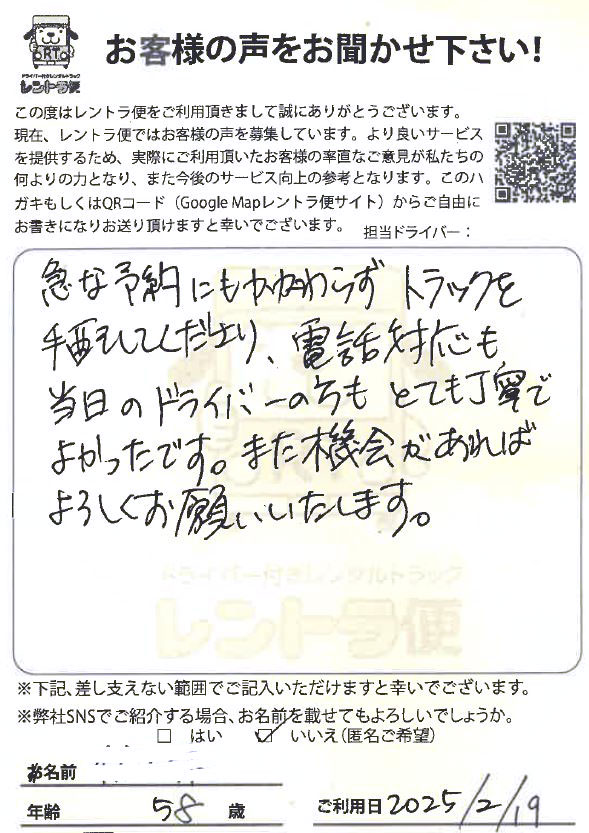 RT
ドライバー付きレンタルトラック
レントラ便
お客様の声をお聞かせ下さい!
この度はレントラ便をご利用頂きまして誠にありがとうございます。
現在、レントラ便ではお客様の声を募集しています。より良いサービス
を提供するため、実際にご利用頂いたお客様の率直なご意見が私たちの
何よりの力となり、また今後のサービス向上の参考となります。このハ
ガキもしくはQRコード（Google Mapレントラ便サイト）からご自由に
お書きになりお送り頂けますと幸いでございます。
担当ドライバー：
急な予約にもかかわらず トラックを
手配してくださり、電話対応も
当日のドライバーの方も とても丁寧で
よかったです。また機会があれば
よろしくお願いいたします。
レントラ便
※下記、差し支えない範囲でご記入いただけますと幸いでございます。
※弊社SNSでご紹介する場合、お名前を載せてもよろしいでしょうか。
□ はい ☑ いいえ（匿名ご希望）
お名前
年齢 58 歳
ご利用日 2025/2/19